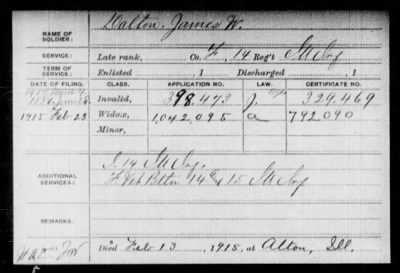 NAME OF SOLDIER: Dalton, James W.
SERVICE: Late rank, Co. F, 14 Reg't Ill Inf
TERM OF SERVICE: Enlisted , 1 Discharged , 1
DATE OF FILING. CLASS. APPLICATION NO. LAW. CERTIFICATE NO.
Invalid, 398.473 J. 329.469
1915 Feb 23 Widow, 1,042,095 a 792090
Minor,
ADDITIONAL SERVICES: I. 14 Ill Inf.
F 14 & 15 Ill Inf
REMARKS:
Died Feb 13, 1915, at Alton, Ill.